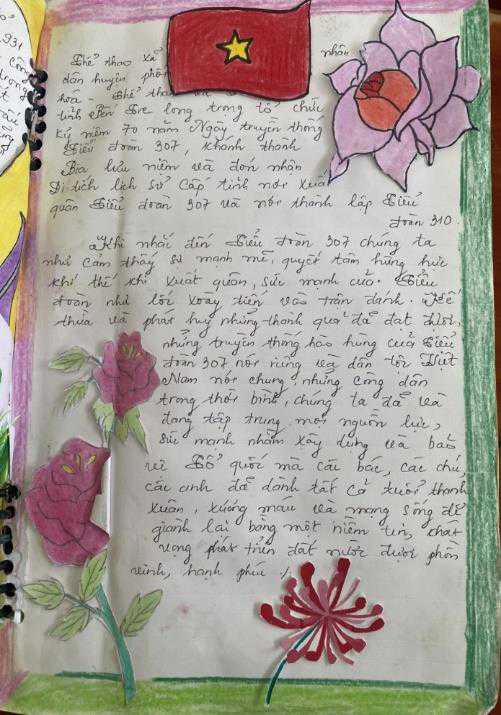 931
Thể thao xã nhân
dân huyện phối
hóa - Thể tha
tỉnh Bến Tre long trọng tổ chức
kỷ niệm 70 năm Ngày truyền thống
Tiểu đoàn 307, khánh thành
Bia lưu niệm và đón nhận
Di tích lịch sử cấp tỉnh nơi xuất
quân Tiểu đoàn 307 và nơi thành lập Tiểu
đoàn 310
Khi nhắc đến Tiểu đoàn 307 chúng ta
như cảm thấy sự mạnh mẽ, quyết tâm hừng hực
khí thế khi xuất quân, sức mạnh của Tiểu
đoàn như lốc xoáy tiến vào trận đánh. Kế
thừa và phát huy những thành quả đã đạt được,
những truyền thống hào hùng của Tiểu
đoàn 307 nói riêng và dân tộc Việt
Nam nói chung, những công dân
trong thời bình, chúng ta đã và
đang tập trung mọi nguồn lực,
sức mạnh nhằm xây dựng và bảo
vệ Tổ quốc mà các bác, các chú,
các anh đã dành tất cả tuổi thanh
xuân, xương máu và mạng sống để
giành lại bằng một niềm tin, khát
vọng phát triển đất nước được phồn
vinh, hạnh phúc /.